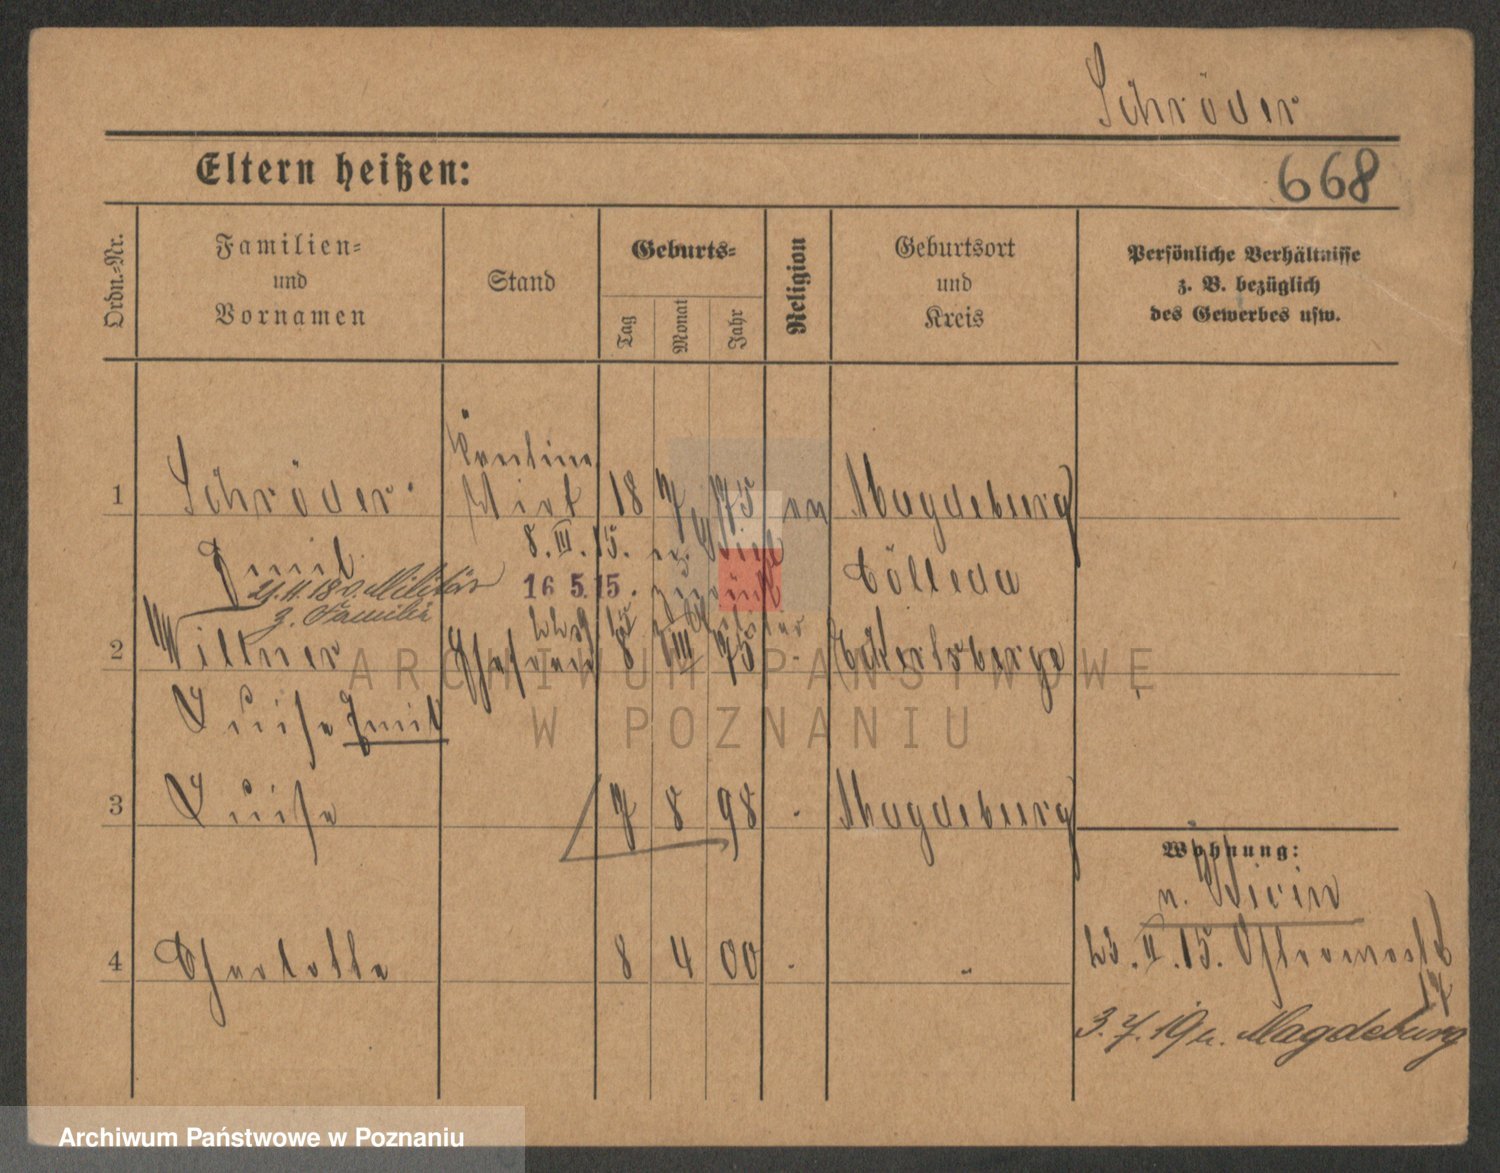 Schröder
Eltern heißen:
668
Ordn.-Nr.
Familien-
und
Vornamen
Stand
Geburts-
Tag
Monat
Jahr
Religion
Geburtsort
und
Kreis
Persönliche Verhältnisse
z. B. bezüglich
des Gewerbes usw.
1 Schröder Wirt 18 7 75 ev Magdeburg
8. III. 15.
Emil Cölleda
21. II. 18 v. Militär 16 5.15. zurück
z. Familie
2 Wiltner Ehefrau 8 III 75 Eckertsberge
Luise Emil
3 Luise 7 8 98 Magdeburg
Wohnung:
4 Charlotte 8 4 00 "
23. II. 15.
17
3. 7. 19 n. Magdeburg
ARCHIWUM PAŃSTWOWE
W POZNANIU
Archiwum Państwowe w Poznaniu